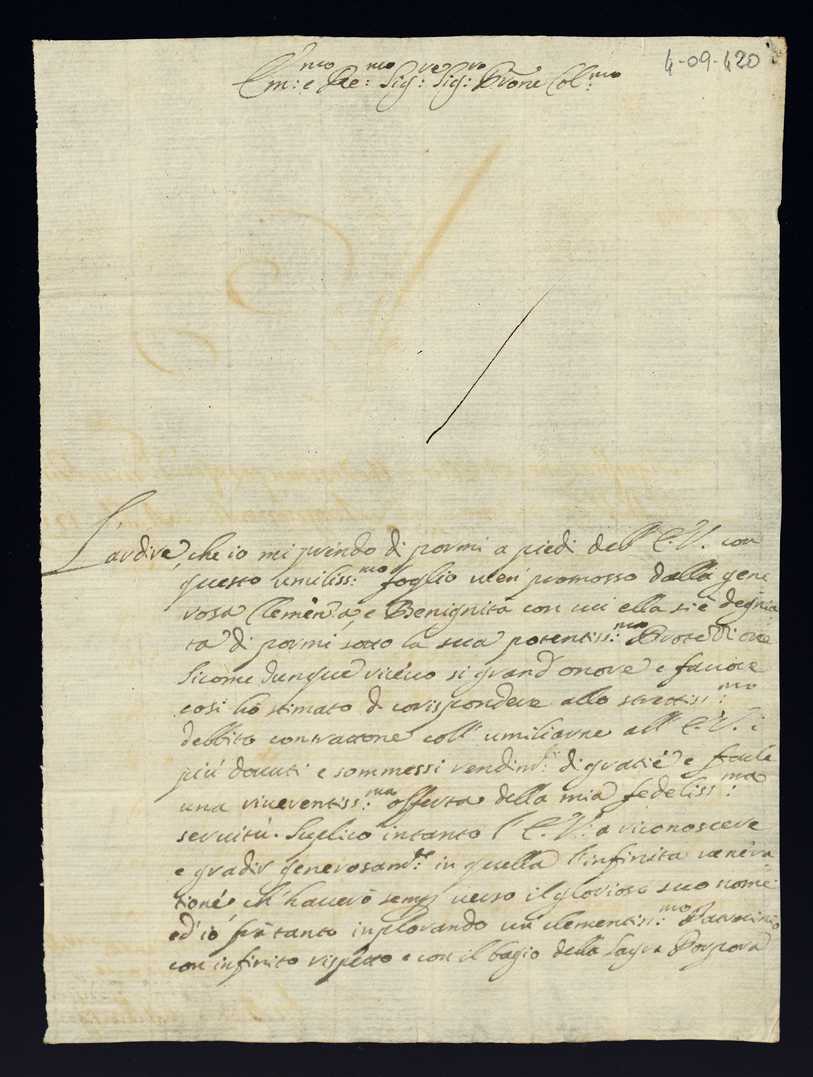 4-09-420
Em:mo e Re:mo Sig:re Sig:re Prone Col:mo
L'ardire, che io mi prendo di pormi a piedi dell' E.V. con
questo umiliss:mo foglio vien promosso dalla gene
rosa Clemenza, e Benignità con cui ella si è degnia
ta di pormi sotto la sua potentiss:ma Protetione
Sicome dunque ricevo si grand' onore e favore
cosi hò stimato di corispondere allo strettiss:mo
debbito contrattone coll' umiliarne all' E.V. i
più dovuti e sommessi rendim:ti di gratie e farle
una riverentiss:ma offerta della mia fedeliss:ma
servitù. Suplico intanto l' E.V. a riconoscere
e gradir generosam:te in quella l'infinita venera
tione ch' haverò semp verso il glorioso suo nome
ed io frà tanto inplorando un clementiss:mo Patrocinio
con infinito rispetto e con il bagio della Sagra Porpora